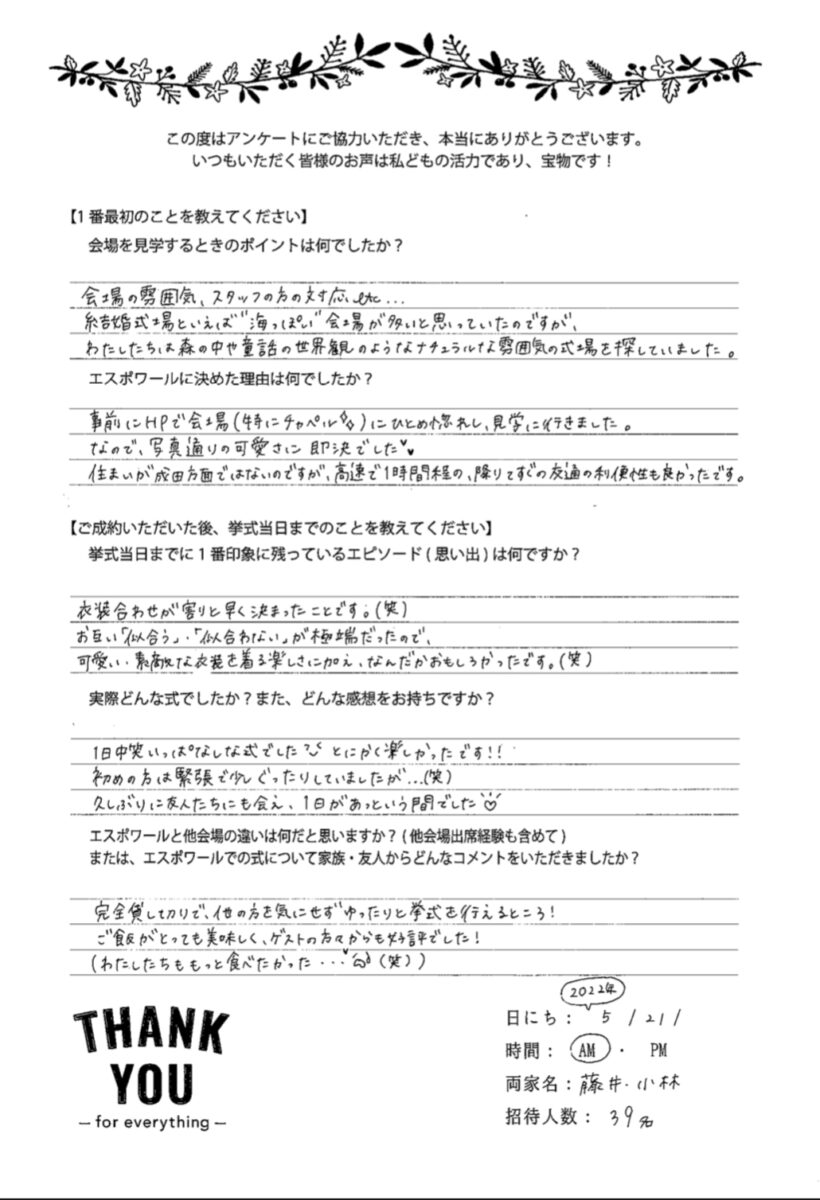 この度はアンケートにご協力いただき、本当にありがとうございます。
いつもいただく皆様のお声は私どもの活力であり、宝物です！
【1番最初のことを教えてください】
会場を見学するときのポイントは何でしたか？
会場の雰囲気、スタッフの方の対応、etc...
結婚式場といえば"海っぽい"会場が多いと思っていたのですが、
わたしたちは森の中や童話の世界観のようなナチュラルな雰囲気の式場を探していました。
エスポワールに決めた理由は何でしたか？
事前にHPで会場(特にチャペル)にひとめ惚れし、見学に行きました。
なので、写真通りの可愛さに即決でした
住まいが成田方面ではないのですが、高速で1時間程の、降りてすぐの交通の利便性も良かったです。
【ご成約いただいた後、挙式当日までのことを教えてください】
挙式当日までに1番印象に残っているエピソード(思い出)は何ですか？
衣装合わせが割りと早く決まったことです。(笑)
お互い「似合う」・「似合わない」が極端だったので、
可愛い・素敵な衣装を着る楽しさに加え、なんだかおもしろかったです。(笑)
実際どんな式でしたか？また、どんな感想をお持ちですか？
1日中笑いっぱなしな式でした とにかく楽しかったです!!
初めの方は緊張で少しぐったりしていましたが...(笑)
久しぶりに友人たちにも会え、1日があっという間でした
エスポワールと他会場の違いは何だと思いますか？(他会場出席経験も含めて)
または、エスポワールでの式について家族・友人からどんなコメントをいただきましたか？
完全貸し切りで、他の方を気にせずゆったりと挙式を行えるところ！
ご飯がとっても美味しく、ゲストの方々からも好評でした！
(わたしたちももっと食べたかった...(笑))
THANK
YOU
for everything
2022年
日にち： 5 / 21 /
時間： AM ・ PM
両家名：藤井・小林
招待人数： 39名